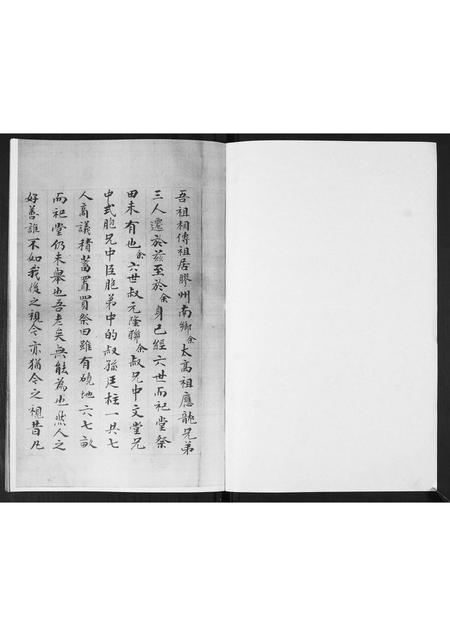 吾祖相傳祖居膠州南鄉余太高祖應龍兄弟
三人遷於茲至於余身已經六世而祀堂祭
田未有也余六世叔元隆聯余叔兄中文堂兄
中式胞兄中臣胞弟中的叔孫廷柱一共七
人商議積蓄置買祭田雖有磽地六七畝
而祀堂仍未舉也吾老矣無能為也然人之
好善誰不如我後之視今亦猶今之視昔凡